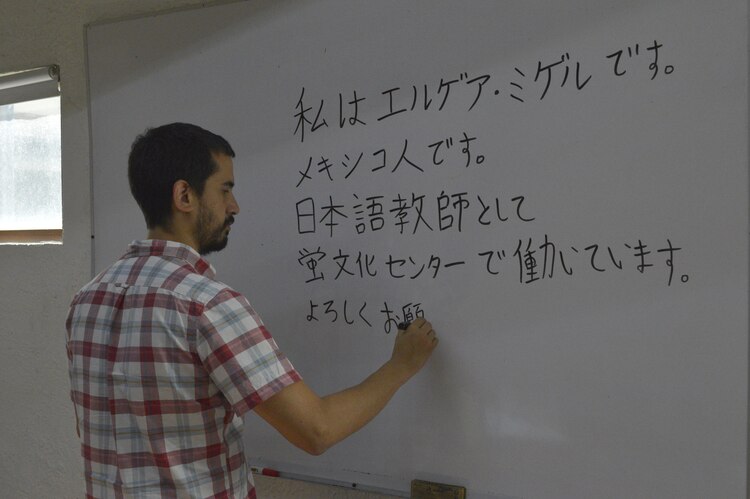 私はエルゲア・ミゲルです。
メキシコ人です。
日本語教師として
蛍文化センターで働いています。
よろしくお願